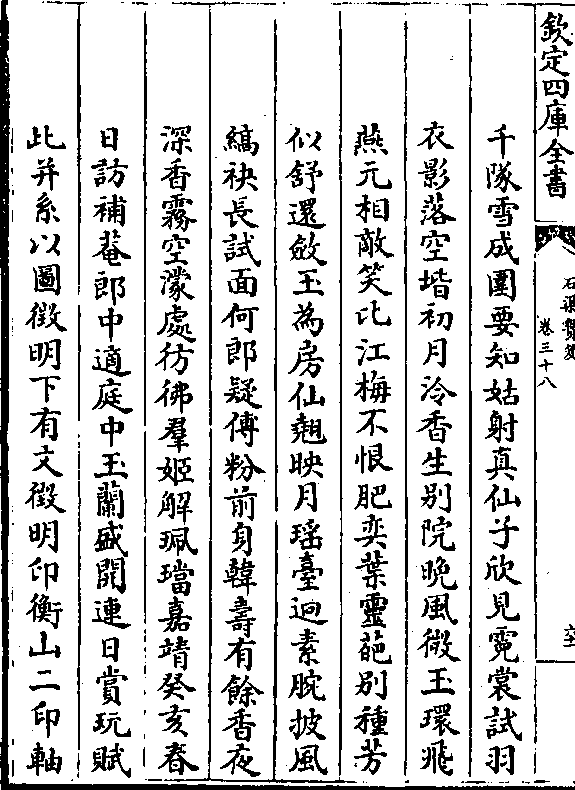 欽定四庫全書
石渠寶笈
卷三十八
千隊雪成圍要知姑射真仙子欣見霓裳試羽
衣影落空堦初月冷香生别院晚風微玉環飛
燕元相敵笑比江梅不恨肥奕葉靈葩别種芳
似舒還斂玉為房仙翹映月瑶臺迥素腕披風
縞袂長試面何郎疑傅粉前身韓壽有餘香夜
深香霧空濛處彷彿羣姬解珮璫嘉靖癸亥春
日訪補菴郎中適庭中玉蘭盛開連日賞玩賦
此并系以圖徵明下有文徵明印衡山二印軸